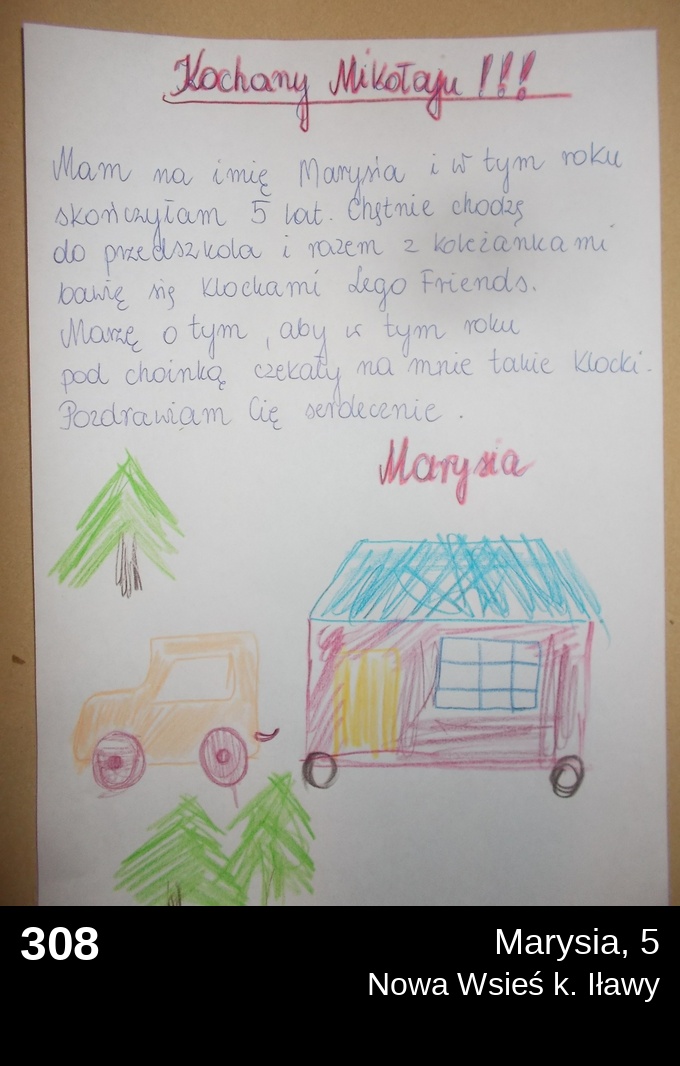 Kochany Mikołaju !!!
Mam na imię Marysia i w tym roku
skończyłam 5 lat. Chętnie chodzę
do przedszkola i razem z koleżankami
bawię się klockami Lego Friends.
Marzę o tym, aby w tym roku
pod choinką czekały na mnie takie klocki.
Pozdrawiam Cię serdecenie.
Marysia
308
Marysia, 5
Nowa Wsieś k. Iławy